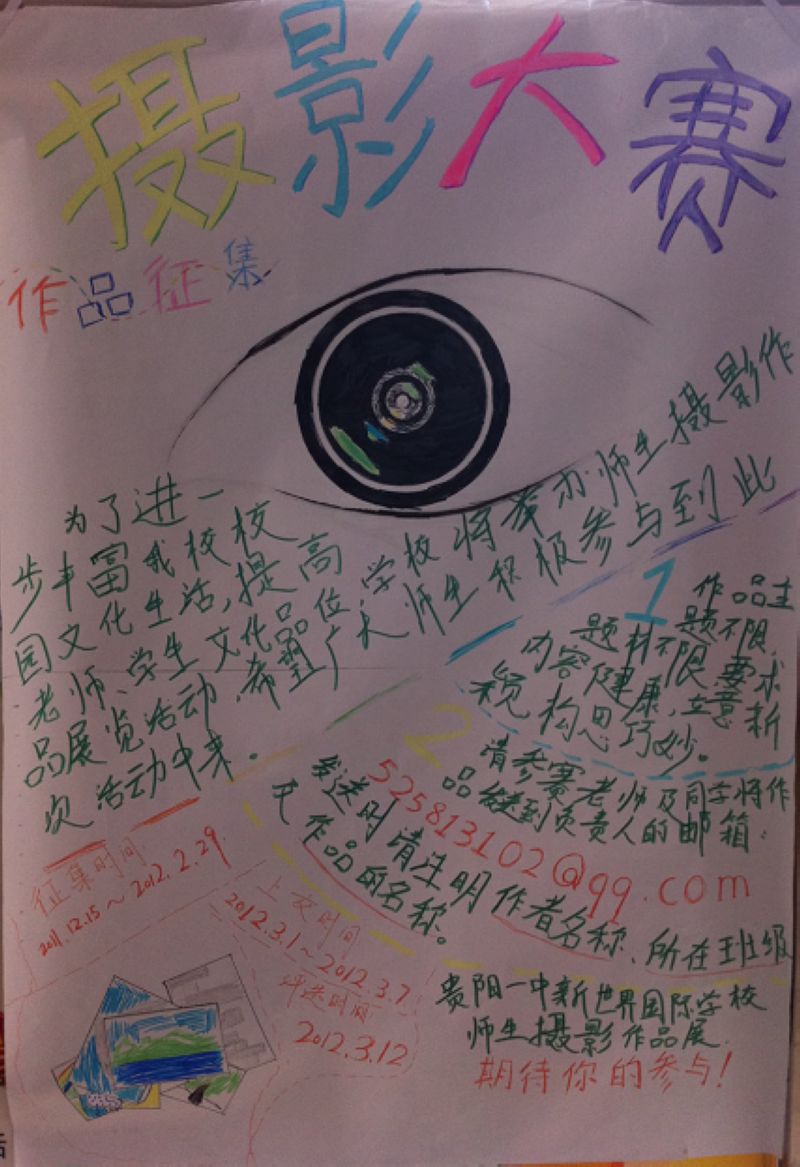 摄影大赛
作品征集
为了进一
步丰富我校校
园文化生活,提高
老师、学生文化品位,学校将举办师生摄影作
品展览活动,希望广大师生积极参与到此
次活动中来。
1
作品主
题不限,
题材不限,要求
内容健康,立意新
颖,构思巧妙。
2
请参赛老师及同学将作
品发送到负责人的邮箱:
525813102@qq.com
发送时请注明作者名称、所在班级
及作品的名称。
征集时间
2011.12.15～2012.2.29
上交时间
2012.3.1～2012.3.7
评选时间
2012.3.12
贵阳一中新世界国际学校
师生摄影作品展
期待你的参与!